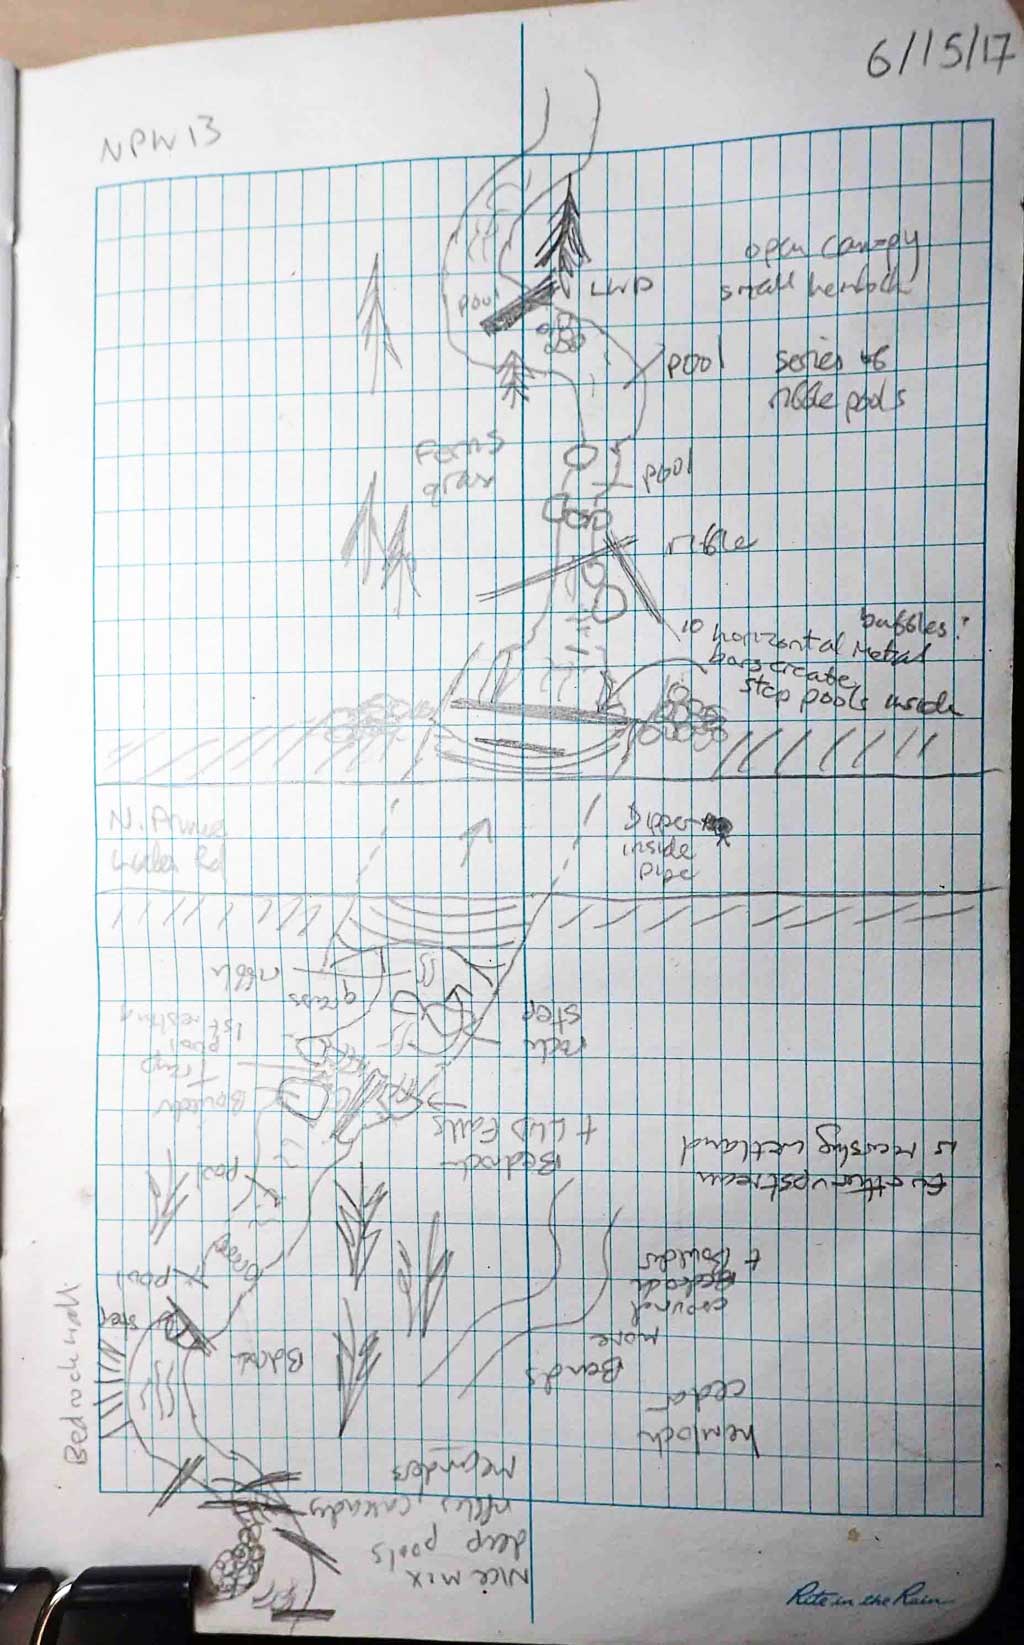 6/15/17
NPW13
open canopy
small hemlock
LWD
pool
pool
series of
riffle pools
Ferns
grass
pool
riffle
baffles?
10 horizontal metal
bars create
step pools inside
N. Prince
Rd
inside
pipe
riffle
grass
step
1st resting
pool
Bedrock
+ LWD Falls
Further upstream
is nearshy wetland
pool
pool
step
Bedrock wall
Bends
more
around
Bedrock
+ Boulder
cedar
hemlock
Nice mix
deep pools
riffles, cascady
meanders
Rite in the Rain